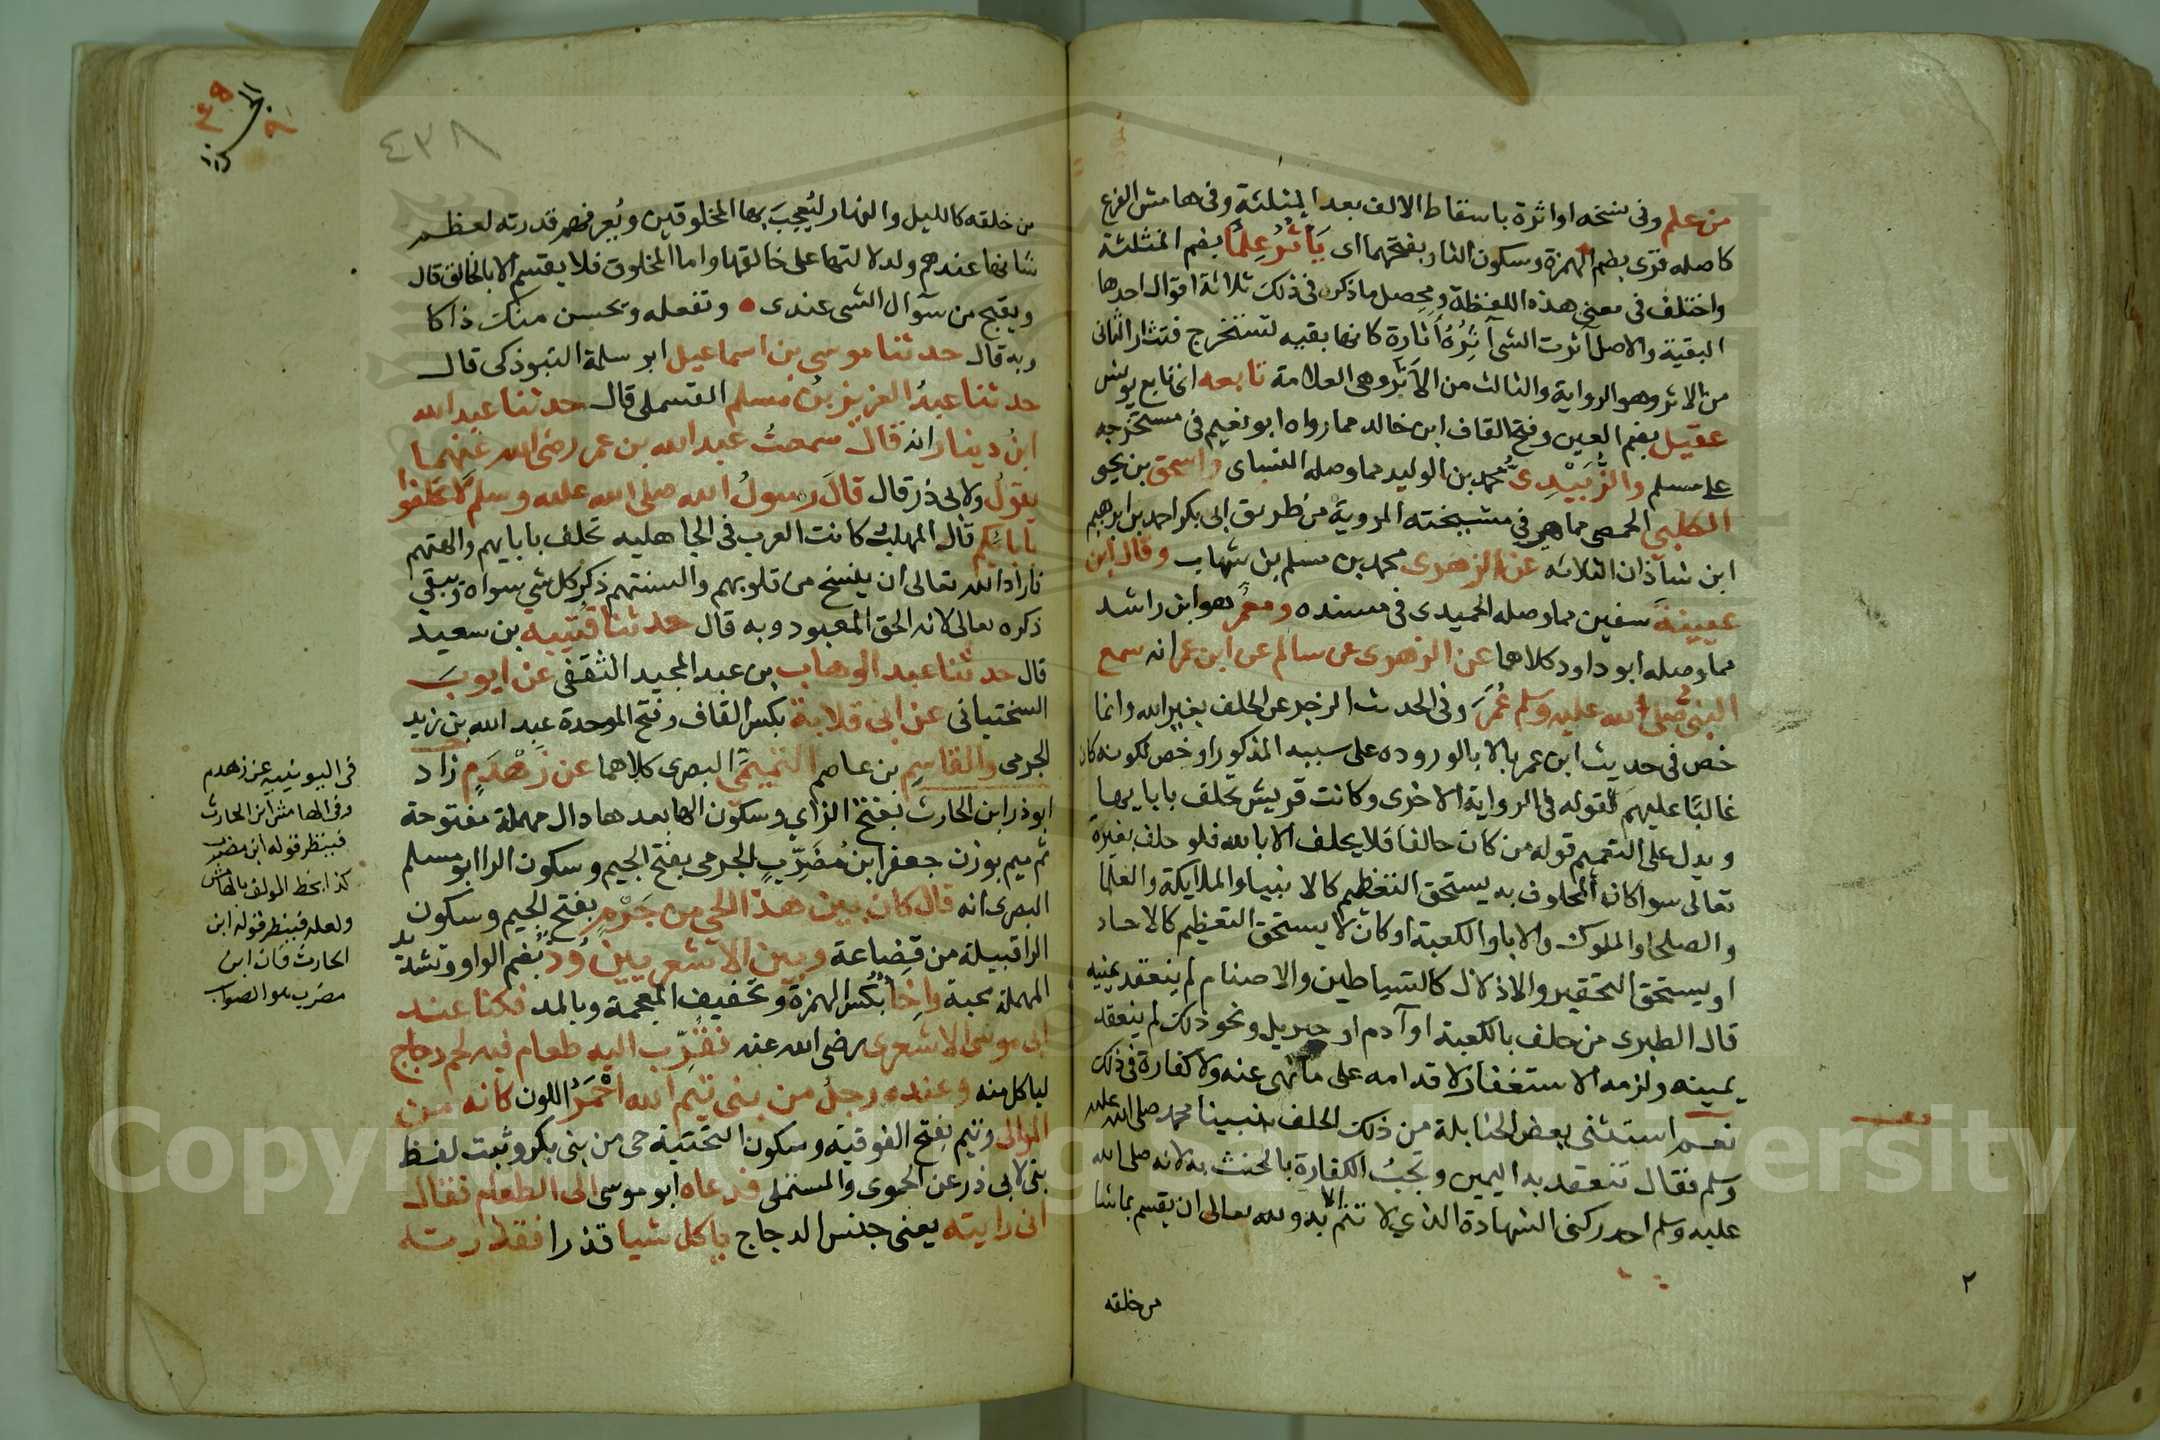 من علم وفى نسخه او اثرة باسقاط الالف بعد المثلثة وفى هامش الفرع
كاصله قرى بضم الهمزة وسكون الثا وبفتحهما اى يَأثُرُ عِلمًا بضم المثلثة
واختلف فى معنى هذه اللفظة ومحصل ماذكره فى ذلك ثلاثة اقوال احدها
البقية والاصل اثرت الشى آثِرُهُ اثارة كانها بقيه تستخرج فتثار الثانى
من الاثر وهو الرواية والثالث من الاَثَر وهى العلامة تابعه اى تابع يونس
عقيل بضم العين وفتح القاف ابن خالد مما رواه ابو نعيم فى مستخرجه
على مسلم والزُّبَيْدِىُّ محمد بن الوليد مما وصله النساى واسحق بن يحى
الكلبى الحمصى مما هى فى مشيخته المروية من طريق ابى بكر احمد بن ابراهيم
ابن شاذان الثلاثه عن الزهرى محمد بن مسلم بن شهاب وقال ابن
عيينة سفين مما وصله الحميدى فى مسنده ومعمر هو ابن راشد
مما وصله ابو داود كلاهما عن الزهرى عن سالم عن ابن عمر انه سمع
النبى صلى الله عليه وسلم عُمَرَ وفى الحديث الزجر عن الحلف بغير الله وانما
خص فى حديث ابن عمر بالابا لوروده على سببه المذكور او خص لكونه كان
غالبًا عليهم لقوله فى الرواية الاخرى وكانت قريش تحلف بابايها
ويدل على التعميم قوله من كان حالفا فلا يحلف الا بالله فلو حلف بغيره
تعالى سوا كان المحلوف به يستحق التعظيم كالانبيا والملايكة والعلما
والصلحا والملوك والابا والكعبة او كان لا يستحق التعظيم كالاحاد
او يستحق التحقير والاذلال كالشياطين والاصنام لم ينعقد يمينه
قال الطبرى من حلف بالكعبة او آدم او جبريل ونحو ذلك لم ينعقد
يمينه ولزمه الاستغفار لاقدامه على ما نهى عنه ولا كفارة فى ذلك
نعم استثنى بعض الحنابلة من ذلك الحلف بنبينا محمد صلى الله عليه
وسلم فقال تنعقد به اليمين وتجبُ الكفارة بالحنث به لانه صلى الله
عليه وسلم احد ركنى الشهادة الذي لا تتم الا به ولله تعالى ان يقسم بما شا
من خلقه
٢
٤٣٨
من خلقه كالليل والنهار ليُعجِبَ بها المخلوقين ويُعرفهم قدرته لعظم
شانها عندهم ولدلالتها على خالقها واما المخلوق فلا يقسم الا بالخالق قال
ويقبح من سوال الشى عندى • وتفعله وتحسن منك ذاكا
وبه قال حدثنا موسى بن اسماعيل ابو سلمة التبوذكى قال
حدثنا عبدُ العزيز بنُ مسلم القسملى قال حدثنا عبد الله
ابنُ دينار انه قال سمعتُ عبد الله بن عمر رضى الله عنهما
يقولُ ولابى ذر قال قالَ رسولُ الله صلى الله عليه وسلم لا تحلفوا
بابايكم قال المهلب كانت العرب فى الجاهليه تحلف بابايهم والهتهم
فاراد الله تعالى ان ينسخ من قلوبهم والسنتهم ذكر كل شي سواه ويبقى
ذكره تعالى لانه الحق المعبود وبه قال حدثنا قتيبه بن سعيد
قال حدثنا عبد الوهاب بن عبد المجيد الثقفى عن ايوبَ
السختيانى عن ابى قلابة بكسر القاف وفتح الموحدة عبد الله بن زيد
الجرمى والقاسِمِ بن عاصم التميمىّ البصرى كلاهما عن زَهْدَمٍ زاد
ابو ذر ابن الحارث بفتح الزاي وسكون الها بعدها دال مهملة مفتوحة
ثم ميم بوزن جعفر ابن مُضَرِّبٍ الجرمى بفتح الجيم وسكون الرا ابو مسلم
البصرى انه قال كان بين هذا الحي من جَرْمٍ بفتح الجيم وسكون
الرا قبيلة من قضاعة وبين الاشعريينَ وُدٌّ بضم الواو وتشديد
المهملة محبة واِخاٌ بكسر الهمزة وتخفيف المعجمة وبالمد فكنا عند
ابى موسى الاشعرى رضى الله عنه فقُرِّب اليه طعام فيه لحم دجاج
لياكل منه وعنده رجلُ من بنى تيم الله احْمَرُ اللون كانه من
الموالى وتيم بفتح الفوقية وسكون التحتية حى من بنى بكر وثبت لفظ
بنى لابى ذر عن الحموى والمستملى فدعاه ابو موسى الى الطعام فقال
انى رايته يعنى جنس الدجاج ياكل شيا قذرا فقذرته
فى اليونينيه عن زهدم
وفى الهامش ابن الحارث
فينظر قوله ابن مضرب
كذا بخط المولف بالهامش
ولعله فينظر قوله ابن
الحارث فان ابن
مضرب هو الصواب
Copyright © King Saud University